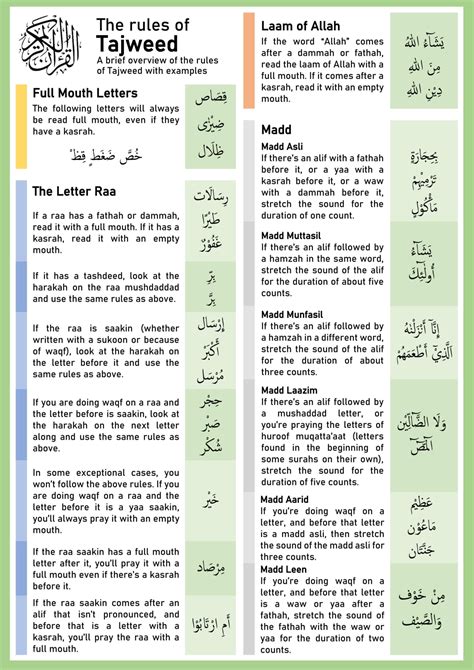 القرآن الكريم
The rules of
Tajweed
A brief overview of the rules
of Tajweed with examples
Full Mouth Letters
The following letters will always
be read full mouth, even if they
have a kasrah.
خُصَّ ضَغْطٍ قِظْ
قِصَاص
ضِيْزٰى
ظِلَال
The Letter Raa
If a raa has a fathah or dammah,
read it with a full mouth. If it has a
kasrah, read it with an empty
mouth.
رِسَالَات
طَيْرًا
غَفُوْرٌ
If it has a tashdeed, look at the
harakah on the raa mushdaddad
and use the same rules as above.
بِرِّ
بِرَّ
If the raa is saakin (whether
written with a sukoon or because
of waqf), look at the harakah on
the letter before it and use the
same rules as above.
إِرْسَال
أَكْبَرْ
مُرْسَل
If you are doing waqf on a raa and
the letter before is saakin, look at
the harakah on the next letter
along and use the same rules as
above.
حِجْر
صَبْر
شُكْر
In some exceptional cases, you
won't follow the above rules. If you
are doing waqf on a raa and the
letter before it is a yaa saakin,
you'll always pray it with an empty
mouth.
خَيْر
If the raa saakin has a full mouth
letter after it, you'll pray it with a
full mouth even if there's a kasrah
before it.
مِرْصَاد
If the raa saakin comes after an
alif that isn't pronounced, and
before that is a letter with a
kasrah, you'll pray the raa with a
full mouth.
أَمِ ارْتَابُوْا
Laam of Allah
If the word "Allah" comes
after a dammah or fathah,
read the laam of Allah with a
full mouth. If it comes after a
kasrah, read it with an empty
mouth.
يَشَاءُ اللهُ
مِنَ اللهِ
دِيْنِ اللهِ
Madd
Madd Asli
If there's an alif with a fathah
before it, or a yaa with a
kasrah before it, or a waw
with a dammah before it,
stretch the sound for the
duration of one count.
بِحِجَارَةٍ
تَرْمِيْهِمْ
مَأْكُوْلٍ
Madd Muttasil
If there's an alif followed by
a hamzah in the same word,
stretch the sound of the alif
for the duration of about five
counts.
يَشَآءُ
أُولٰٓئِكَ
Madd Munfasil
If there's an alif followed by a
hamzah in a different word,
stretch the sound of the alif
for the duration of about
three counts.
إِنَّآ أَنْزَلْنٰهُ
الَّذِيْٓ أَطْعَمَهُمْ
Madd Laazim
If there's an alif followed by
a mushaddad letter, or
you're praying the letters of
huroof muqatta'aat (letters
found in the beginning of
some surahs on their own),
stretch the sound for the
duration of five counts.
وَلَا الضَّآلِّيْنَ
الٓمٓصٓ
Madd Aarid
If you're doing waqf on a
letter, and before that letter
is a madd asli, then stretch
the sound of the madd asli for
three counts.
عَظِيْم
مَاعُوْن
جَنَّتَان
Madd Leen
If you're doing waqf on a
letter, and before that letter
is a waw or yaa after a
fathah, stretch the sound of
the fathah with the waw or
yaa for the duration of two
counts.
مِنْ خَوْف
وَالصَّيْف